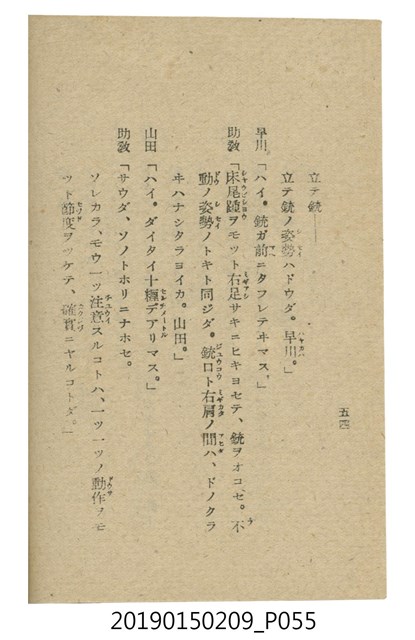 五四
立テ銃――
立テ銃ノ姿勢ハドウダ。早川。」
早川「ハイ。銃ガ前ニタフレテヰマス。」
助教「床尾踵ヲモット右足サキニヒキヨセテ、銃ヲオコセ。不
動ノ姿勢ノトキト同ジダ。銃口ト右肩ノ間ハ、ドノクラ
ヰハナシタラヨイカ。山田。」
山田「ハイ。ダイタイ十糎デアリマス。」
助教「サウダ、ソノトホリニナホセ。
ソレカラ、モウ一ツ注意スルコトハ、一ツ一ツノ動作ヲモ
ット節度ヲツケテ、確實ニヤルコトダ。」
20190150209_P055